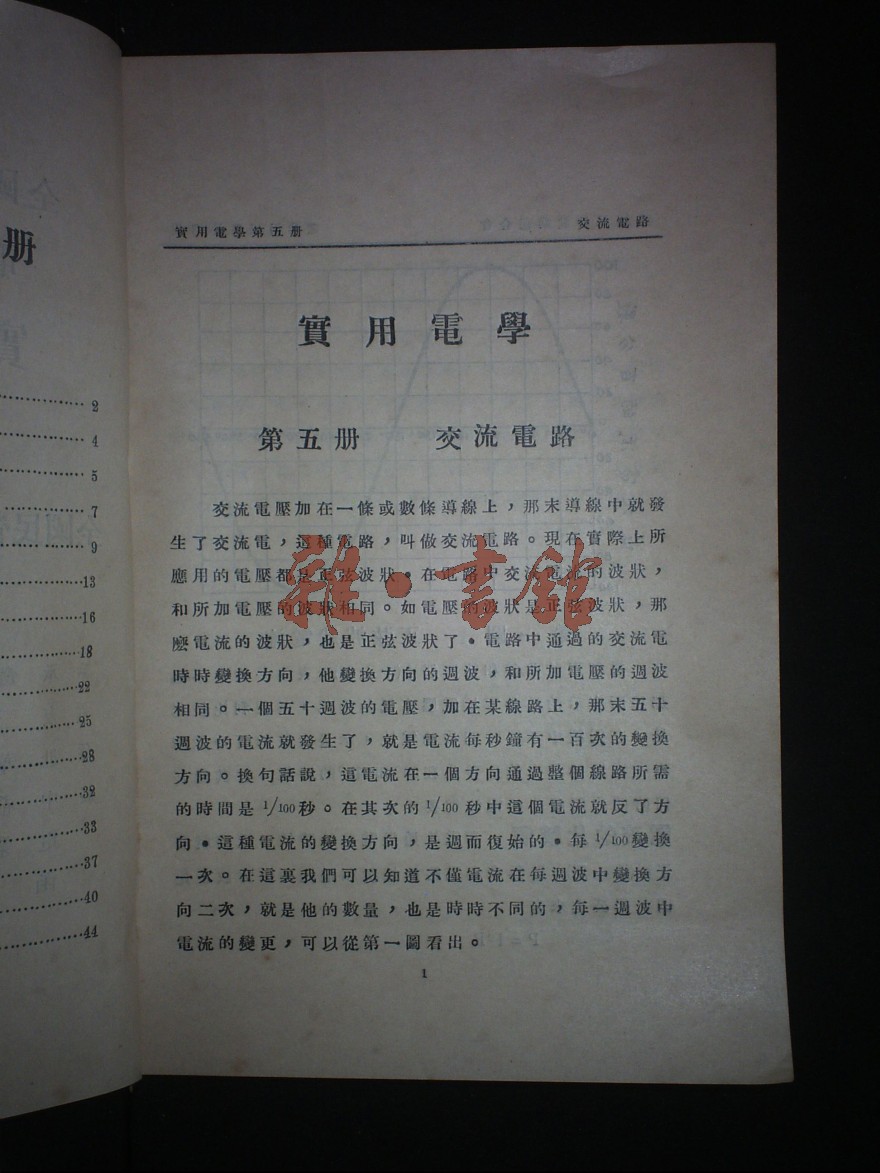 册
2
4
5
7
9
13
16
18
22
25
28
32
33
37
40
44
實用電學第五册 交流電路
實用電學
第五册 交流電路
交流電壓加在一條或數條導線上，那末導線中就發
生了交流電，這種電路，叫做交流電路。現在實際上所
應用的電壓都是正弦波狀。在電路中交流電流的波狀，
和所加電壓的波狀相同。如電壓的波狀是正弦波狀，那
麽電流的波狀，也是正弦波狀了。電路中通過的交流電
時時變換方向，他變換方向的週波，和所加電壓的週波
相同。一個五十週波的電壓，加在某線路上，那末五十
週波的電流就發生了，就是電流每秒鐘有一百次的變換
方向。換句話說，這電流在一個方向通過整個線路所需
的時間是 1/100 秒。在其次的 1/100 秒中這個電流就反了方
向。這種電流的變換方向，是週而復始的。每 1/100 變換
一次。在這裏我們可以知道不僅電流在每週波中變換方
向二次，就是他的數量，也是時時不同的，每一週波中
電流的變更，可以從第一圖看出。
1
雜·書館